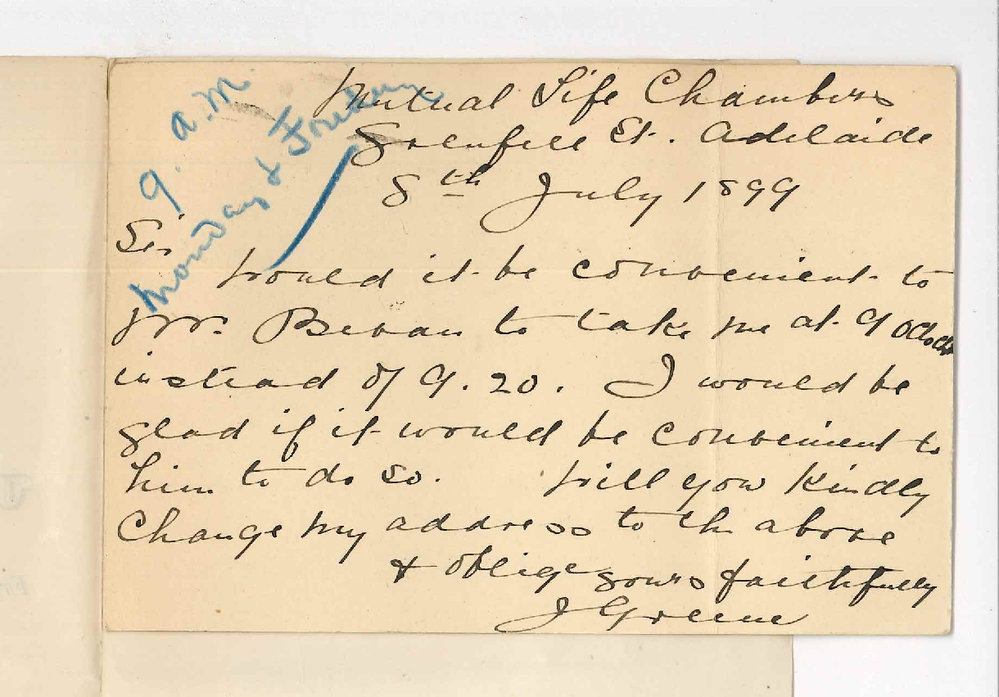 Mutual Life Chambers
Grenfell St. Adelaide
8th July 1899
9. a.m
Monday &
Sir
Would it be convenient to
Mr. Bevan to take me at 9 oClock
instead of 9.20. I would be
glad if it would be convenient to
him to do so. Will you Kindly
Change my address to the above
& oblige yours faithfully
J Greene